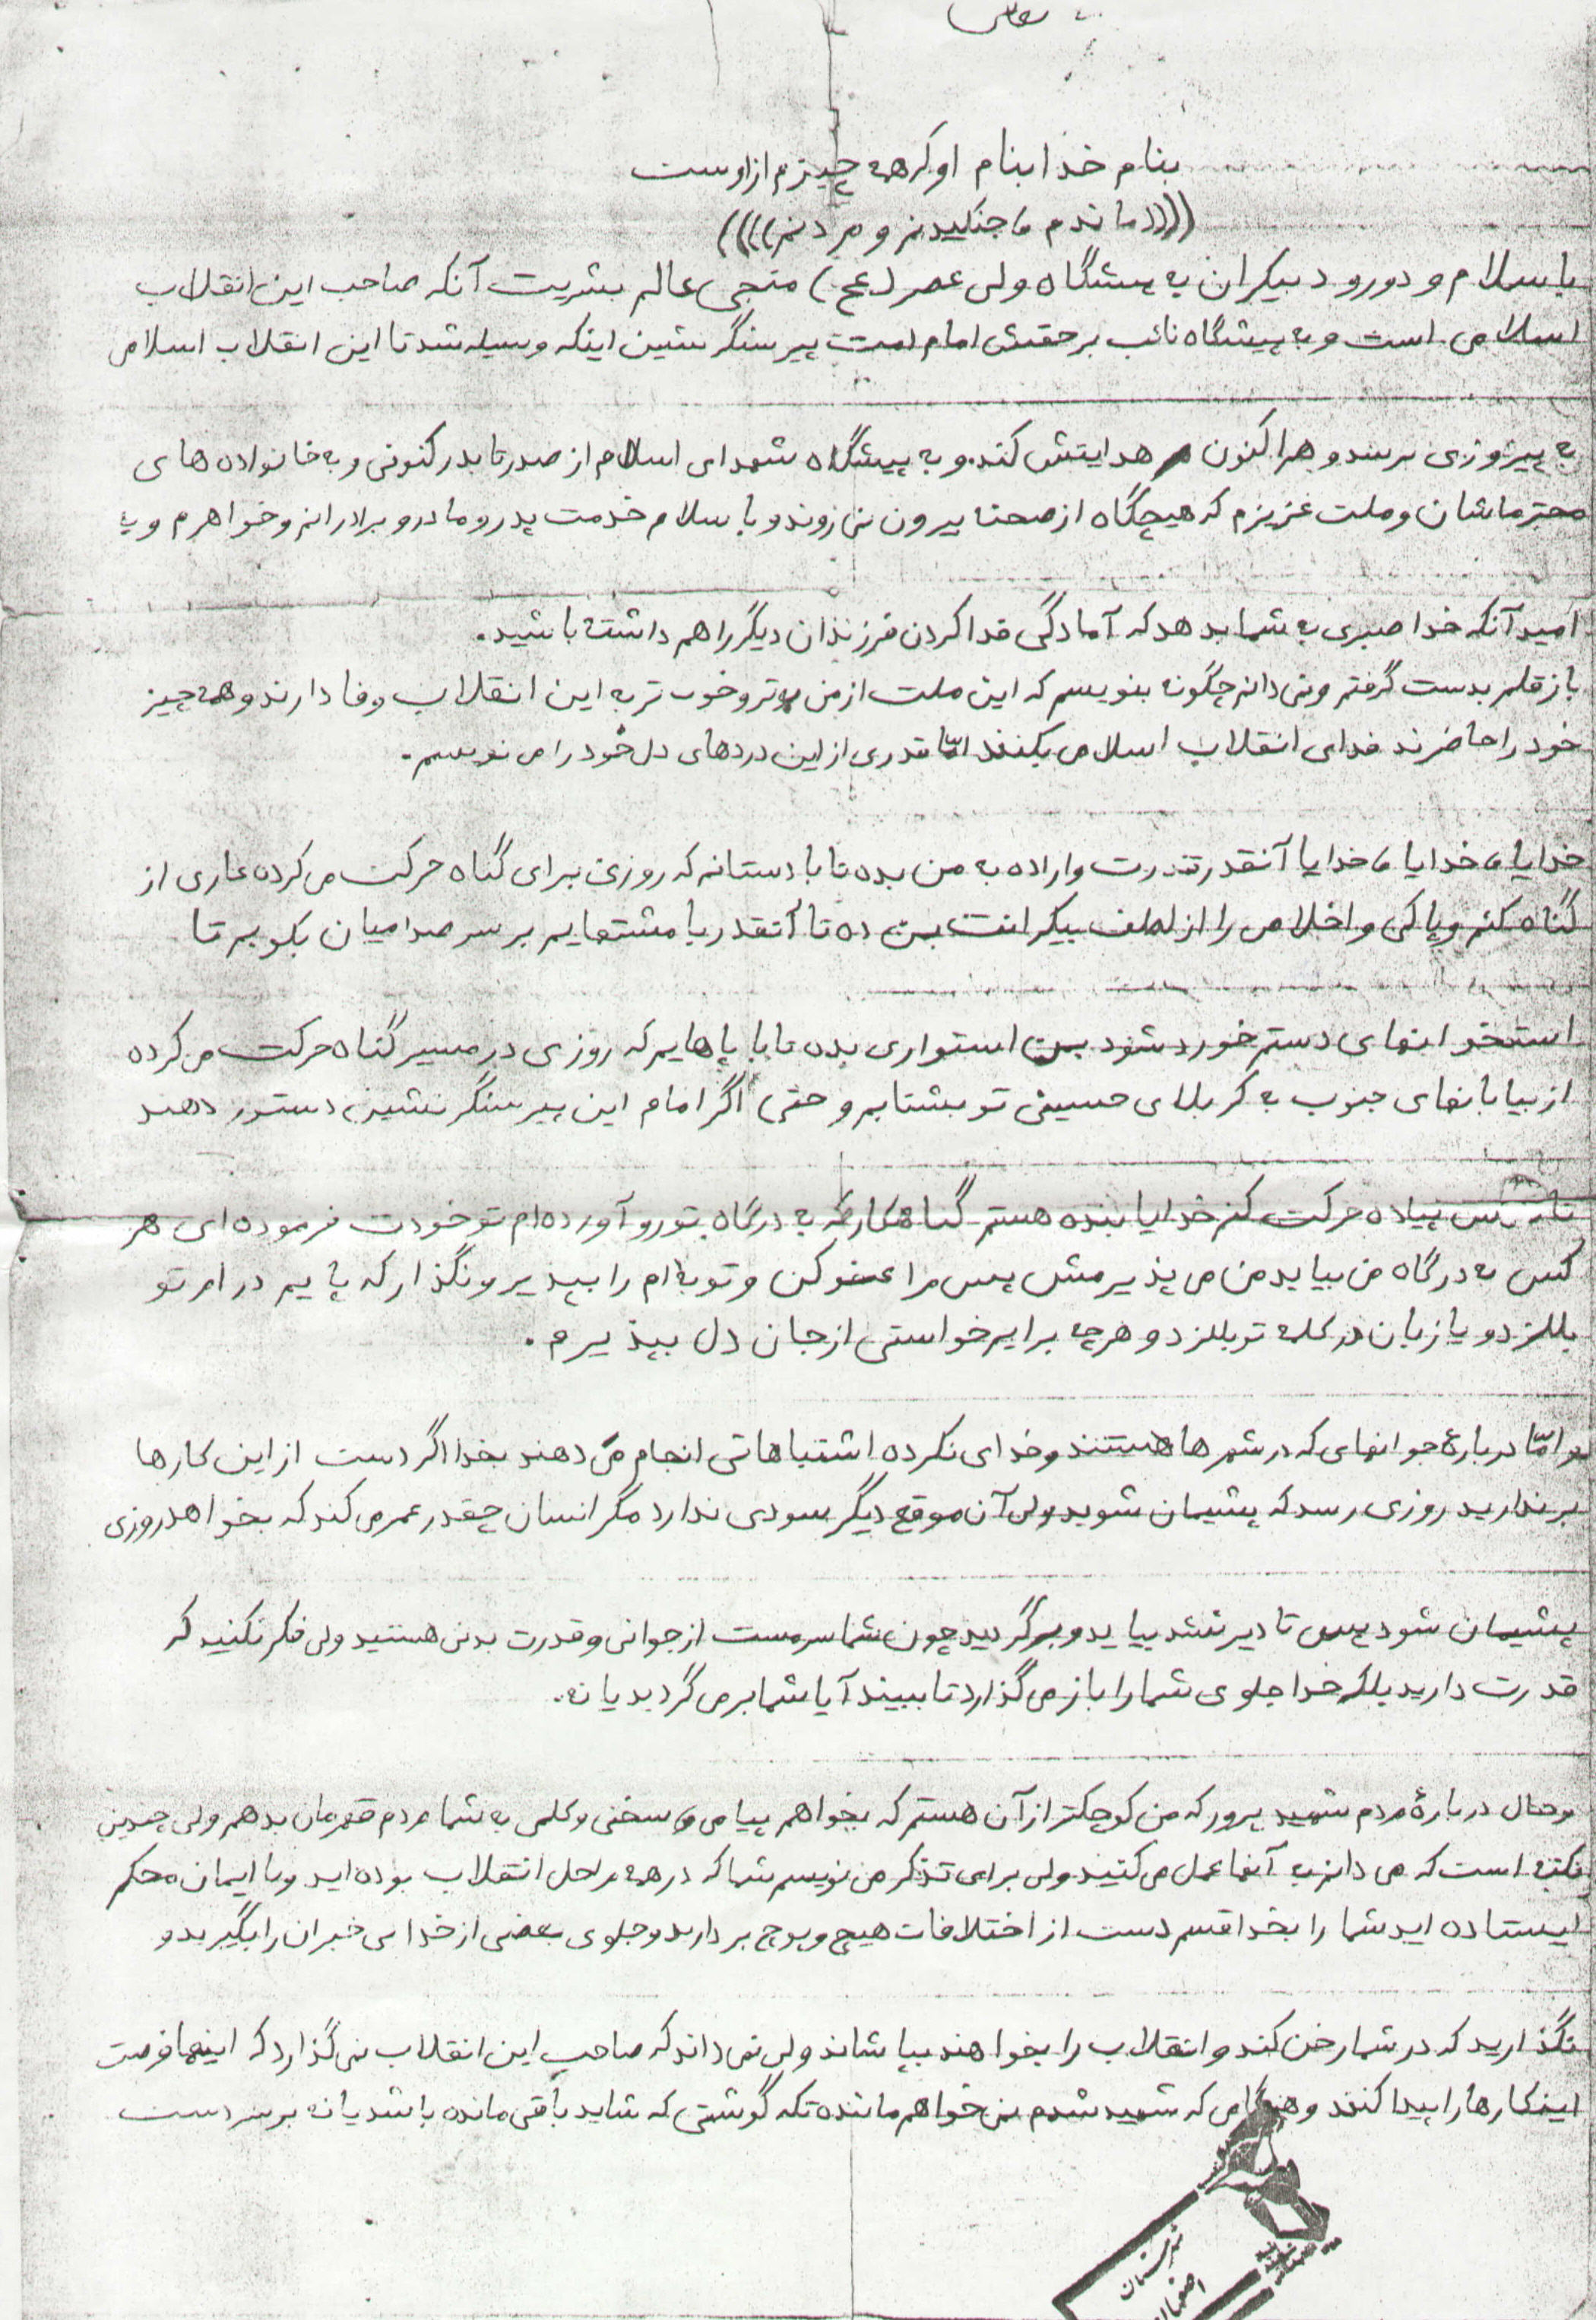 بنام خدا بنام او که همه چیزم از اوست
((((ماندم ، جنگیدنم و مردنم))))
با سلام و دورود بیکران به پیشگاه ولی عصر (عج) منجی عالم بشریت آنکه صاحب این انقلاب
اسلامی است و به پیشگاه نائب بر حقش امام امت پیر سنگر نشین اینکه وسیله شد تا این انقلاب اسلامی
به پیروزی برسد و هم اکنون هدایتش کند. و به پیشگاه شهدای اسلام از صدر تا بدر کنونی و به خانواده های
محترماشان و ملت عزیزم که هیچگاه از صحنه بیرون نمی روند و با سلام خدمت پدر و مادر و برادرانم و خواهرم و به
امید آنکه خدا صبری به شما بدهد که آمادگی فدا کردن فرزندان دیگر را هم داشته باشید.
باز قلم بدست گرفتم و نمی دانم چگونه بنویسم که این ملت از من بهتر و خوب تر به این انقلاب وفادارند و همه چیز
خود را حاضرند فدای انقلاب اسلامی بکنند امّا قدری از این دردهای دل خود را می نویسم.
خدایا ، خدایا ، خدایا آنقدر قدرت و اراده به من بده تا با دستانم که روزی برای گناه حرکت می کرده عاری از
گناه کنم و پاکی و اخلاص را از لطف بیکرانت بمن ده تا آنقدر با مشتهایم بر سر صدامیان بکوبم تا
استخوانهای دستم خورد شود بمن استواری بده تا با پاهایم که روزی در مسیر گناه حرکت می کرده
از بیابانهای جنوب به کربلای حسینی تو بشتابم و حتی اگر امام این پیر سنگر نشین دستور دهند
تا پیاده حرکت کنم خدایا بنده هستم گناهکار که به درگاه تو رو آورده ام تو خودت فرموده ای هر
کس به درگاه من بیاید من می پذیرمش پس مرا عفو کن و توبه ام را بپذیر و نگذار که پایم در امر تو
بللرزد و یا زبان در کلمه تو بللرزد و هر چه برایم خواستی از جان دل بپذیرم.
و امّا دربارهٔ جوانهای که در شهرها هستند و خدای نکرده اشتباهاتی انجام می دهند بخدا اگر دست از این کارها
برندارید روزی رسد که پشیمان شوید ولی آن موقع دیگر سودی ندارد مگر انسان چقدر عمر می کند که بخواهد روزی
پشیمان شود پس تا دیر نشد بیاید و برگردید چون شما سرمست از جوانی و قدرت بدنی هستید ولی فکر نکنید که
قدرت دارید بلکه خدا جلوی شما را باز می گذارد تا ببیند آیا شما بر می گردید یا نه.
و حال دربارهٔ مردم شهید پرور که من کوچکتر از آن هستم که بخواهم پیامی و سخنی و کلمی به شما مردم قهرمان بدهم ولی چندین
نکته است که می دانم به آنها عمل می کنید ولی برای تذکر می نویسم شما که در همه مراحل انقلاب بوده اید و با ایمان محکم
ایستاده اید شما را بخدا قسم دست از اختلافات هیچ و پوچ بردارید و جلوی بعضی از خدا بی خبران را بگیرید و
نگذارید که در شما رخن کند و انقلاب را بخواهند بپاشاند ولی نمی داند که صاحب این انقلاب نمی گذارد که اینها فرصت
اینکارها را پیدا کنند و هنگامی که شهید شدم نمی خواهم مانده تکه گوشتی که شاید باقی مانده باشد یا نه بر سر دست
شهرستان